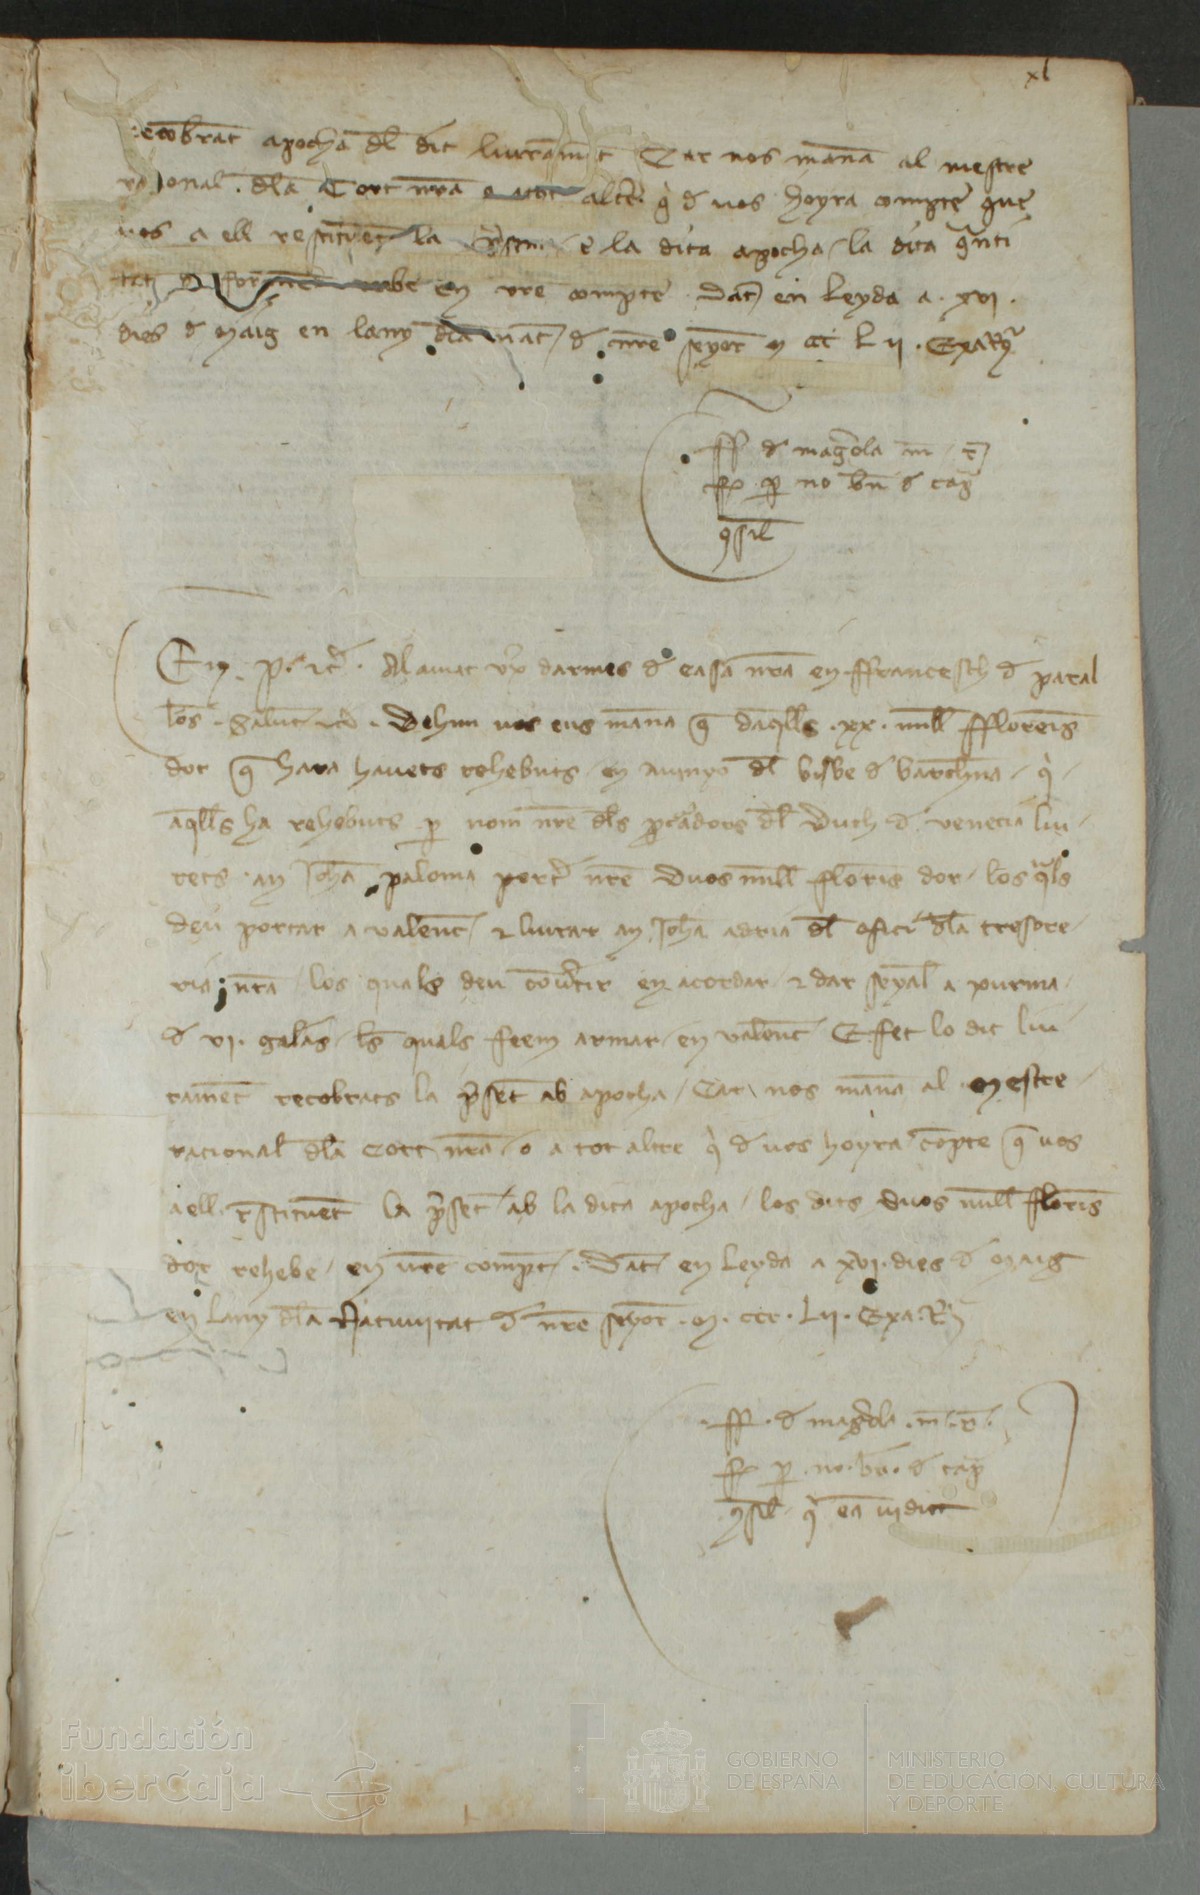 xl
recobrat apocha dl dit liurament Car nos mana al mestre
racional dla Cort nra o a tot altre q d vos hoyra compte que
vos a ell restituent la e la dita apocha la dita qnti
tat reebe en vre compte Dat en Leyda a . xvi .
dies d Maig en lany dla nat d nre seyor M CCC L II . Exa Rq
ff d magrola m r
fo p no bn d cap
9sil
En . P . etc . Al amat uxr darmes d casa nra en ffrancesch d paral
los . Salut etc . Dehim vos eus mana q daqlls . xx . mill fflorens
dor q hara havets rehebuts en Avinyo dl bisbe d barchna q
aqlls ha rehebuts p nom nre dls pcadors dl Duch d venecia liu
rets an Joha paloma porter nre Duos mill floris dor los qls
deu portar a valenc et liurar an Joha adria dl ofici dla tresore
ria nra los quals deu covertir en acordar et dar seyal a xurma
d vi . galas ls quals feem armar en valenc E fet lo dit liu
rament recobrats la pset ab apocha Car nos mana al Mestre
racional dla Cort nra o a tot altre q d vos hoyra compte q vos
a ell restituet la pset ab la dita apocha los dits Duos mill floris
dor rehebe en vre compt . Dat en Leyda a xvi . dies d Maig
en lany dla Nativitat d nre seyor . M . CCC . L II . Exa . Rq
. ff . d magrola . m . r .
fo p . no . bn . d cap
9sil q ea vidit
Fundación
iberCaja
GOBIERNO
DE ESPAÑA
MINISTERIO
DE EDUCACIÓN, CULTURA
Y DEPORTE